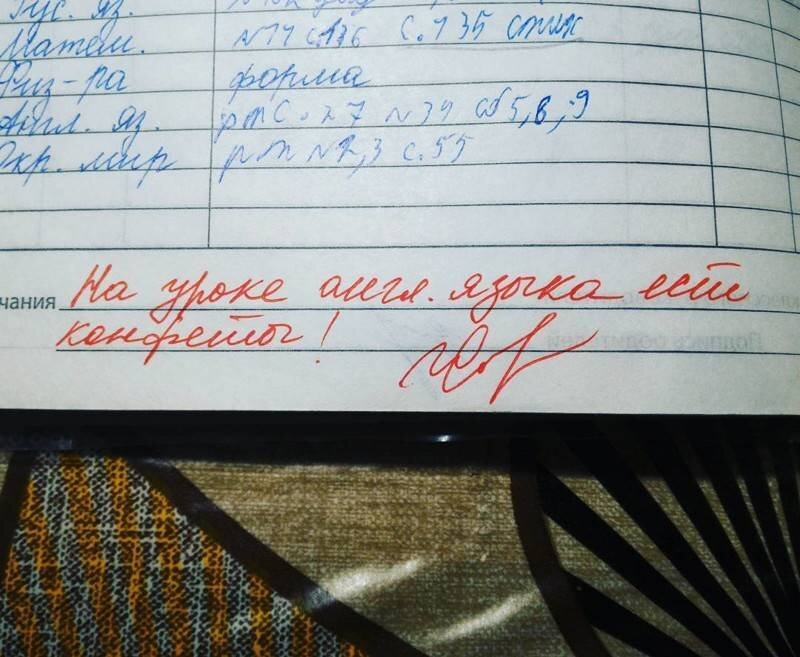 Рус. яз.
Матем. №14 с.136 с.135 стих
Физ-ра форма
Англ. яз. рт с. 27 №34 сб 5,8,9
Окр. мир рт №2,3 с.55
чания На уроке англ. языка ест
конфеты!
Подпись родителей